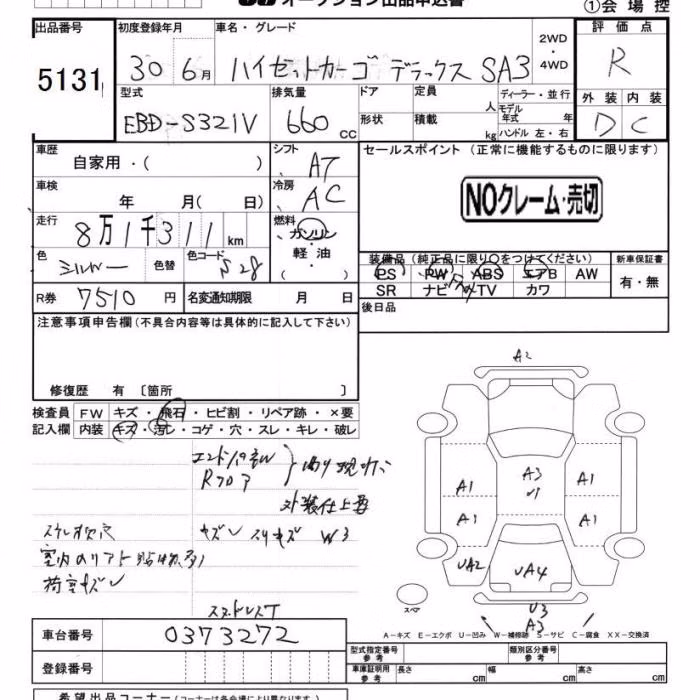 オークション出品申込書
①会場控
出品番号 初度登録年月 車名・グレード 2WD・4WD 評価点
5131 30 6月 ハイゼットカーゴ デラックス SA3 R
型式 排気量 ドア 定員 人 ディーラー・並行 外装 内装
EBD-S321V 660 cc 形状 積載 kg モデル年式 年 ハンドル 左・右 D C
車歴 シフト セールスポイント(正常に機能するものに限ります)
自家用・( ) AT
車検 冷房 NOクレーム・売切
年 月( 日) AC
走行 燃料
8万1千311km ガソリン・軽油・( )
色 色替 色コード 装備品(純正品に限り○をつけてください) 新車保証書
シルバー S28 PS PW ABS エアB AW 有・無
SR ナビ TV カワ
R券 7510円 名変通知期限 月 日 後日品
注意事項申告欄(不具合内容等は具体的に記入して下さい)
修復歴 有 〔箇所 〕
検査員記入欄 FW キズ・飛石・ヒビ割・リペア跡・×要
内装 キズ・汚レ・コゲ・穴・スレ・キレ・破レ
Rフロア
外装仕上要
W3
A2
A3
A1 A1
A1 A1
UA2 UA4
スペア
U3
A3
A-キズ E-エクボ U-凹み W-補修跡 S-サビ C-腐食 XX-交換済
スタッドレスT
車台番号 0373272
型式指定番号 参考 類別区分番号 参考
登録番号
車庫証明用 参考 長さ cm 幅 cm 高さ cm
希望出品コーナー(コーナーは各会場により異なります)